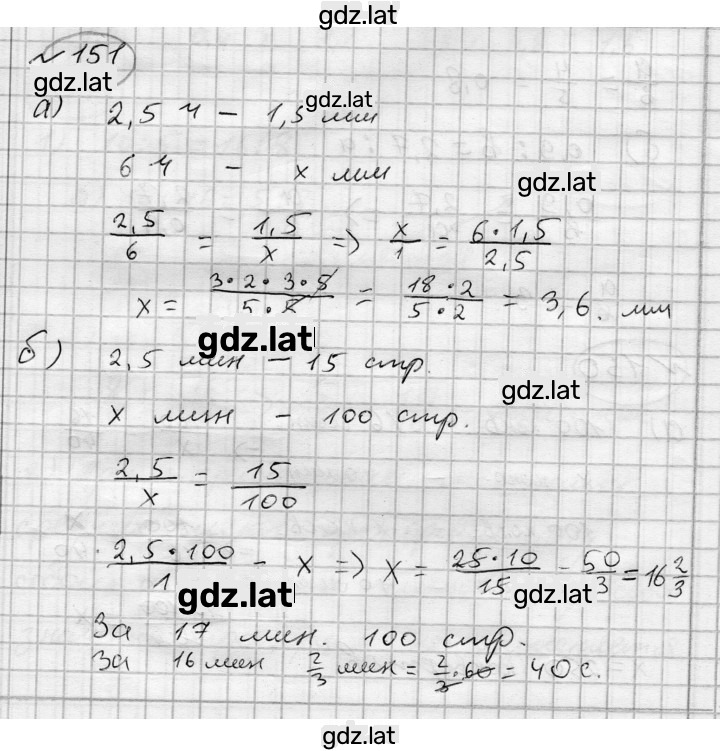 gdz.lat
№ 151
gdz.lat
а) 2,5 ч – 1,5 мм
gdz.lat
6 ч – х мм
gdz.lat
2,5/6 = 1,5/х => х/1 = 6·1,5/2,5
х = 3·2·3·5/5·2 = 18·2/5·2 = 3,6. мм
gdz.lat
б) 2,5 мин – 15 стр.
gdz.lat
х мин – 100 стр.
2,5/х = 15/100
2,5·100/1 – х => х = 25·10/15 – 50/3 = 16 2/3
gdz.lat
gdz.lat
За 17 мин. 100 стр.
За 16 мин 2/3 мин = 2/3·60 = 40 с.
gdz.lat